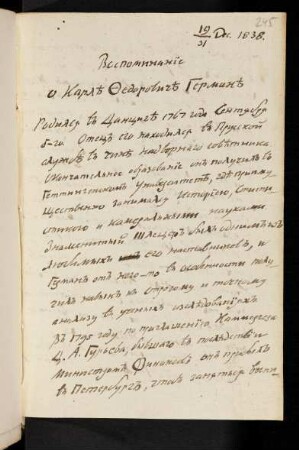 245
19/31 Dec. 1838.
Воспоминаніе
о Карлѣ Ѳедоровичѣ Германѣ
Родился въ Данцигѣ 1767 года Сентября
5-го. Отецъ его находился въ Прусской
службѣ въ чинѣ надворнаго совѣтника
Окончательное образованіе онъ получилъ въ
Геттингенскомъ Университетѣ, гдѣ преиму
щественно занимался Исторіею, Стати
стикою и камеральными науками
Знаменитый Шлецеръ былъ однимъ изъ
любимыхъ его наставниковъ, и
Германъ отъ него-то въ особенности полу
чилъ навыкъ къ строгому и точному
анализу въ ученыхъ изслѣдованіяхъ
Въ 1795 году по приглашенію Каммергера
Д. А. Гурьева, бывшаго въ послѣдствіи
Министромъ Финансовъ онъ прибылъ
въ Петербургъ, чтобъ заняться воспи-